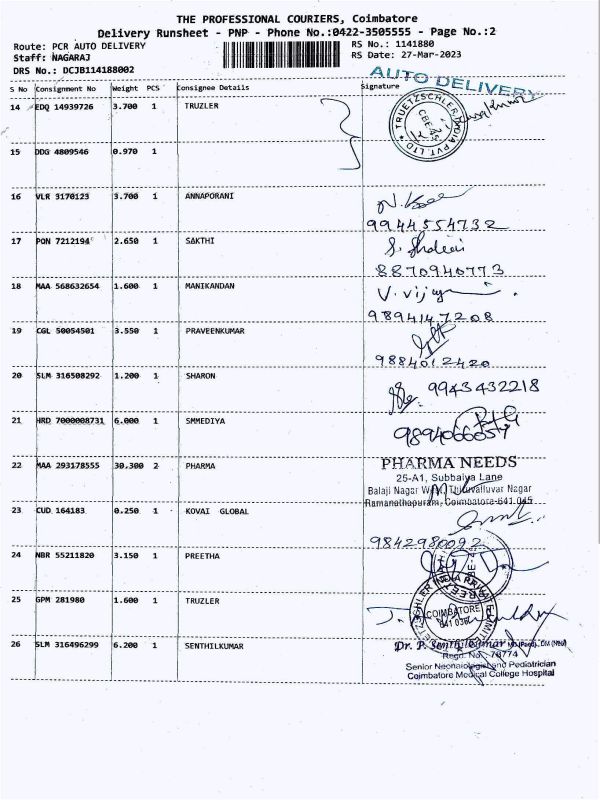 THE PROFESSIONAL COURIERS, Coimbatore
Delivery Runsheet - PNP - Phone No.:0422-3505555 - Page No.:2
Route: PCR AUTO DELIVERY
RS No.: 1141880
Staff: NAGARAJ
RS Date: 27-Mar-2023
DRS No.: DCJB114188002
AUTO DELIVERY
S No Consignment No Weight PCS Consignee Details Signature
14 EDQ 14939726 3.700 1 TRUZLER
TRUETZSCHLER INDIA PVT. LTD
CBE-45
15 DDG 4809546 0.970 1
16 VLR 3170123 3.700 1 ANNAPORANI
9944554732
17 PON 7212194 2.650 1 SAKTHI
8870940773
18 MAA 568632654 1.600 1 MANIKANDAN
V. vijay
9894147208
19 CGL 50054501 3.550 1 PRAVEENKUMAR
9884012420
20 SLM 316508292 1.200 1 SHARON
9943432218
21 HRD 7000008731 6.000 1 SMMEDIYA
9894066059
22 MAA 293178555 30.300 2 PHARMA
PHARMA NEEDS
25-A1, Subbaiya Lane
Balaji Nagar Thiruvalluvar Nagar
Ramanathapuram, Coimbatore-641 045
23 CUD 164183 0.250 1 KOVAI GLOBAL
9842980092
24 NBR 55211820 3.150 1 PREETHA
25 GPM 281980 1.600 1 TRUZLER
COIMBATORE
26 SLM 316496299 6.200 1 SENTHILKUMAR
Dr. P. Senthil Kumar
Regd. No.: 78774
Senior Neonatologist and Pediatrician
Coimbatore Medical College Hospital